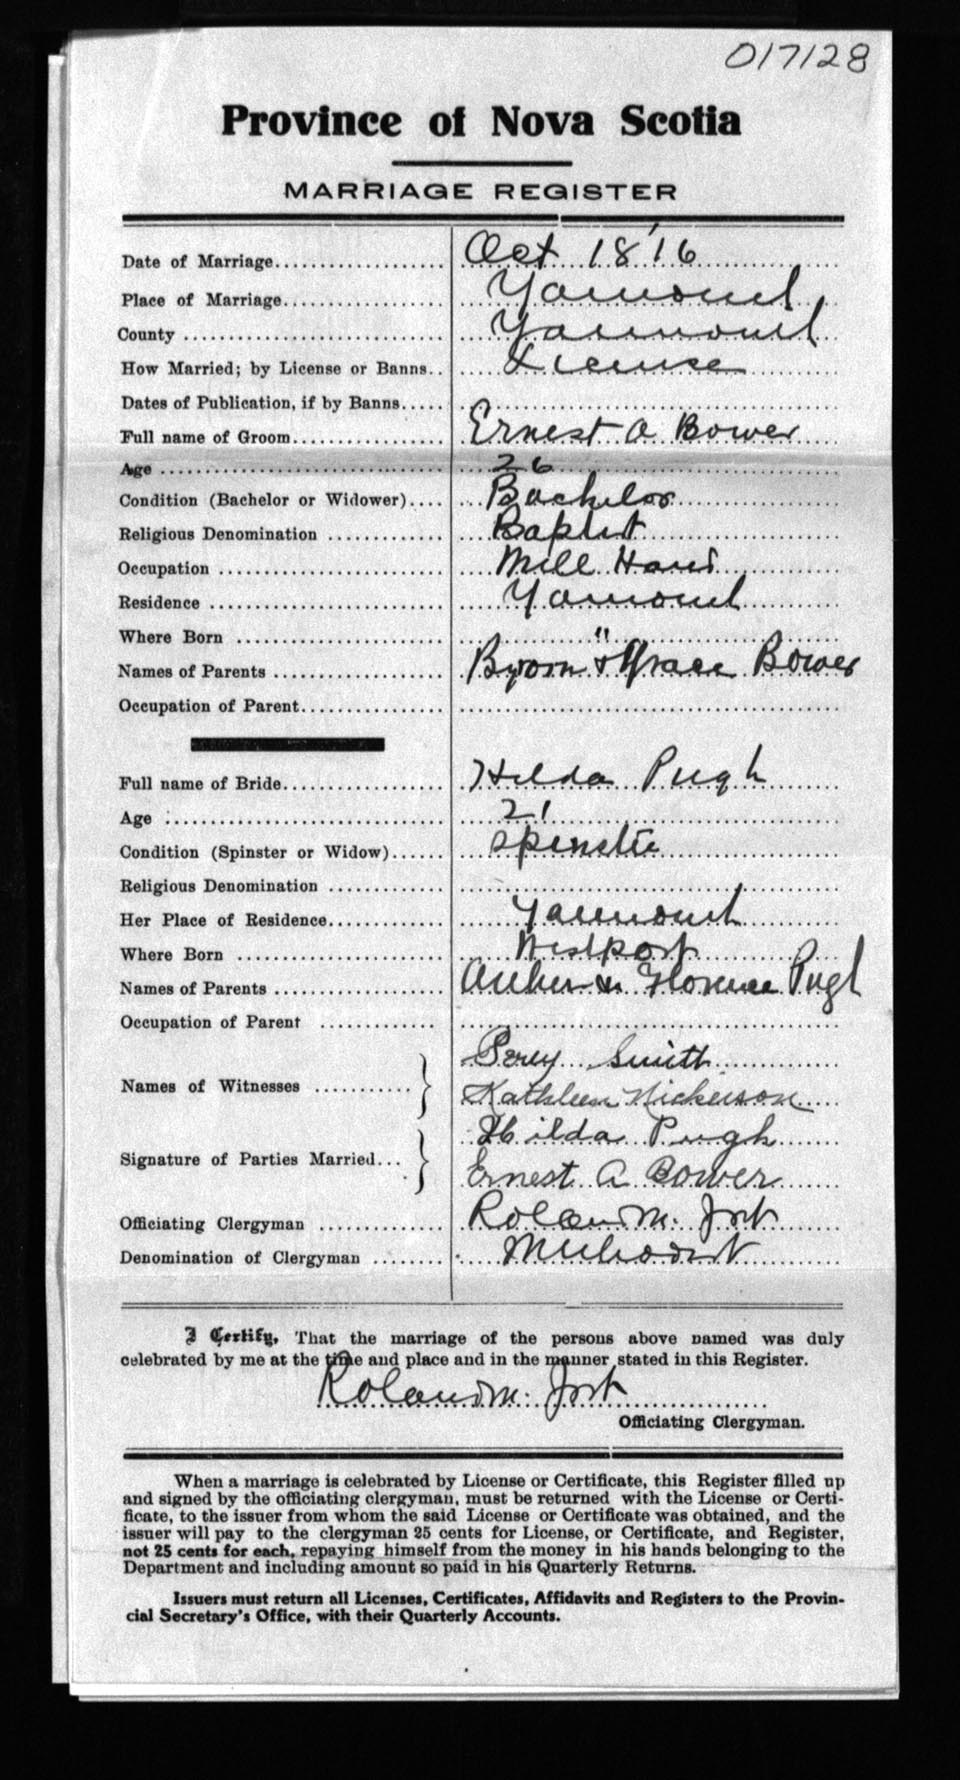 017128
Province of Nova Scotia
MARRIAGE REGISTER
Date of Marriage Oct 18 '16
Place of Marriage Yarmouth
County Yarmouth
How Married; by License or Banns License
Dates of Publication, if by Banns
Full name of Groom Ernest A Bower
Age 26
Condition (Bachelor or Widower) Bachelor
Religious Denomination Baptist
Occupation Mill Hand
Residence Yarmouth
Where Born "
Names of Parents Byron & Grace Bower
Occupation of Parent
Full name of Bride Hilda Pugh
Age 21
Condition (Spinster or Widow) Spinster
Religious Denomination
Her Place of Residence Yarmouth
Where Born Westport
Names of Parents Florence Pugh
Occupation of Parent
Percy Smith
Names of Witnesses
Kathleen Nickerson
Hilda Pugh
Signature of Parties Married
Ernest A Bower
Officiating Clergyman Roland M.
Denomination of Clergyman Methodist
I Certify, That the marriage of the persons above named was duly
celebrated by me at the time and place and in the manner stated in this Register.
Roland M.
Officiating Clergyman.
When a marriage is celebrated by License or Certificate, this Register filled up
and signed by the officiating clergyman, must be returned with the License or Certi-
ficate, to the issuer from whom the said License or Certificate was obtained, and the
issuer will pay to the clergyman 25 cents for License, or Certificate, and Register,
not 25 cents for each, repaying himself from the money in his hands belonging to the
Department and including amount so paid in his Quarterly Returns.
Issuers must return all Licenses, Certificates, Affidavits and Registers to the Provin-
cial Secretary's Office, with their Quarterly Accounts.